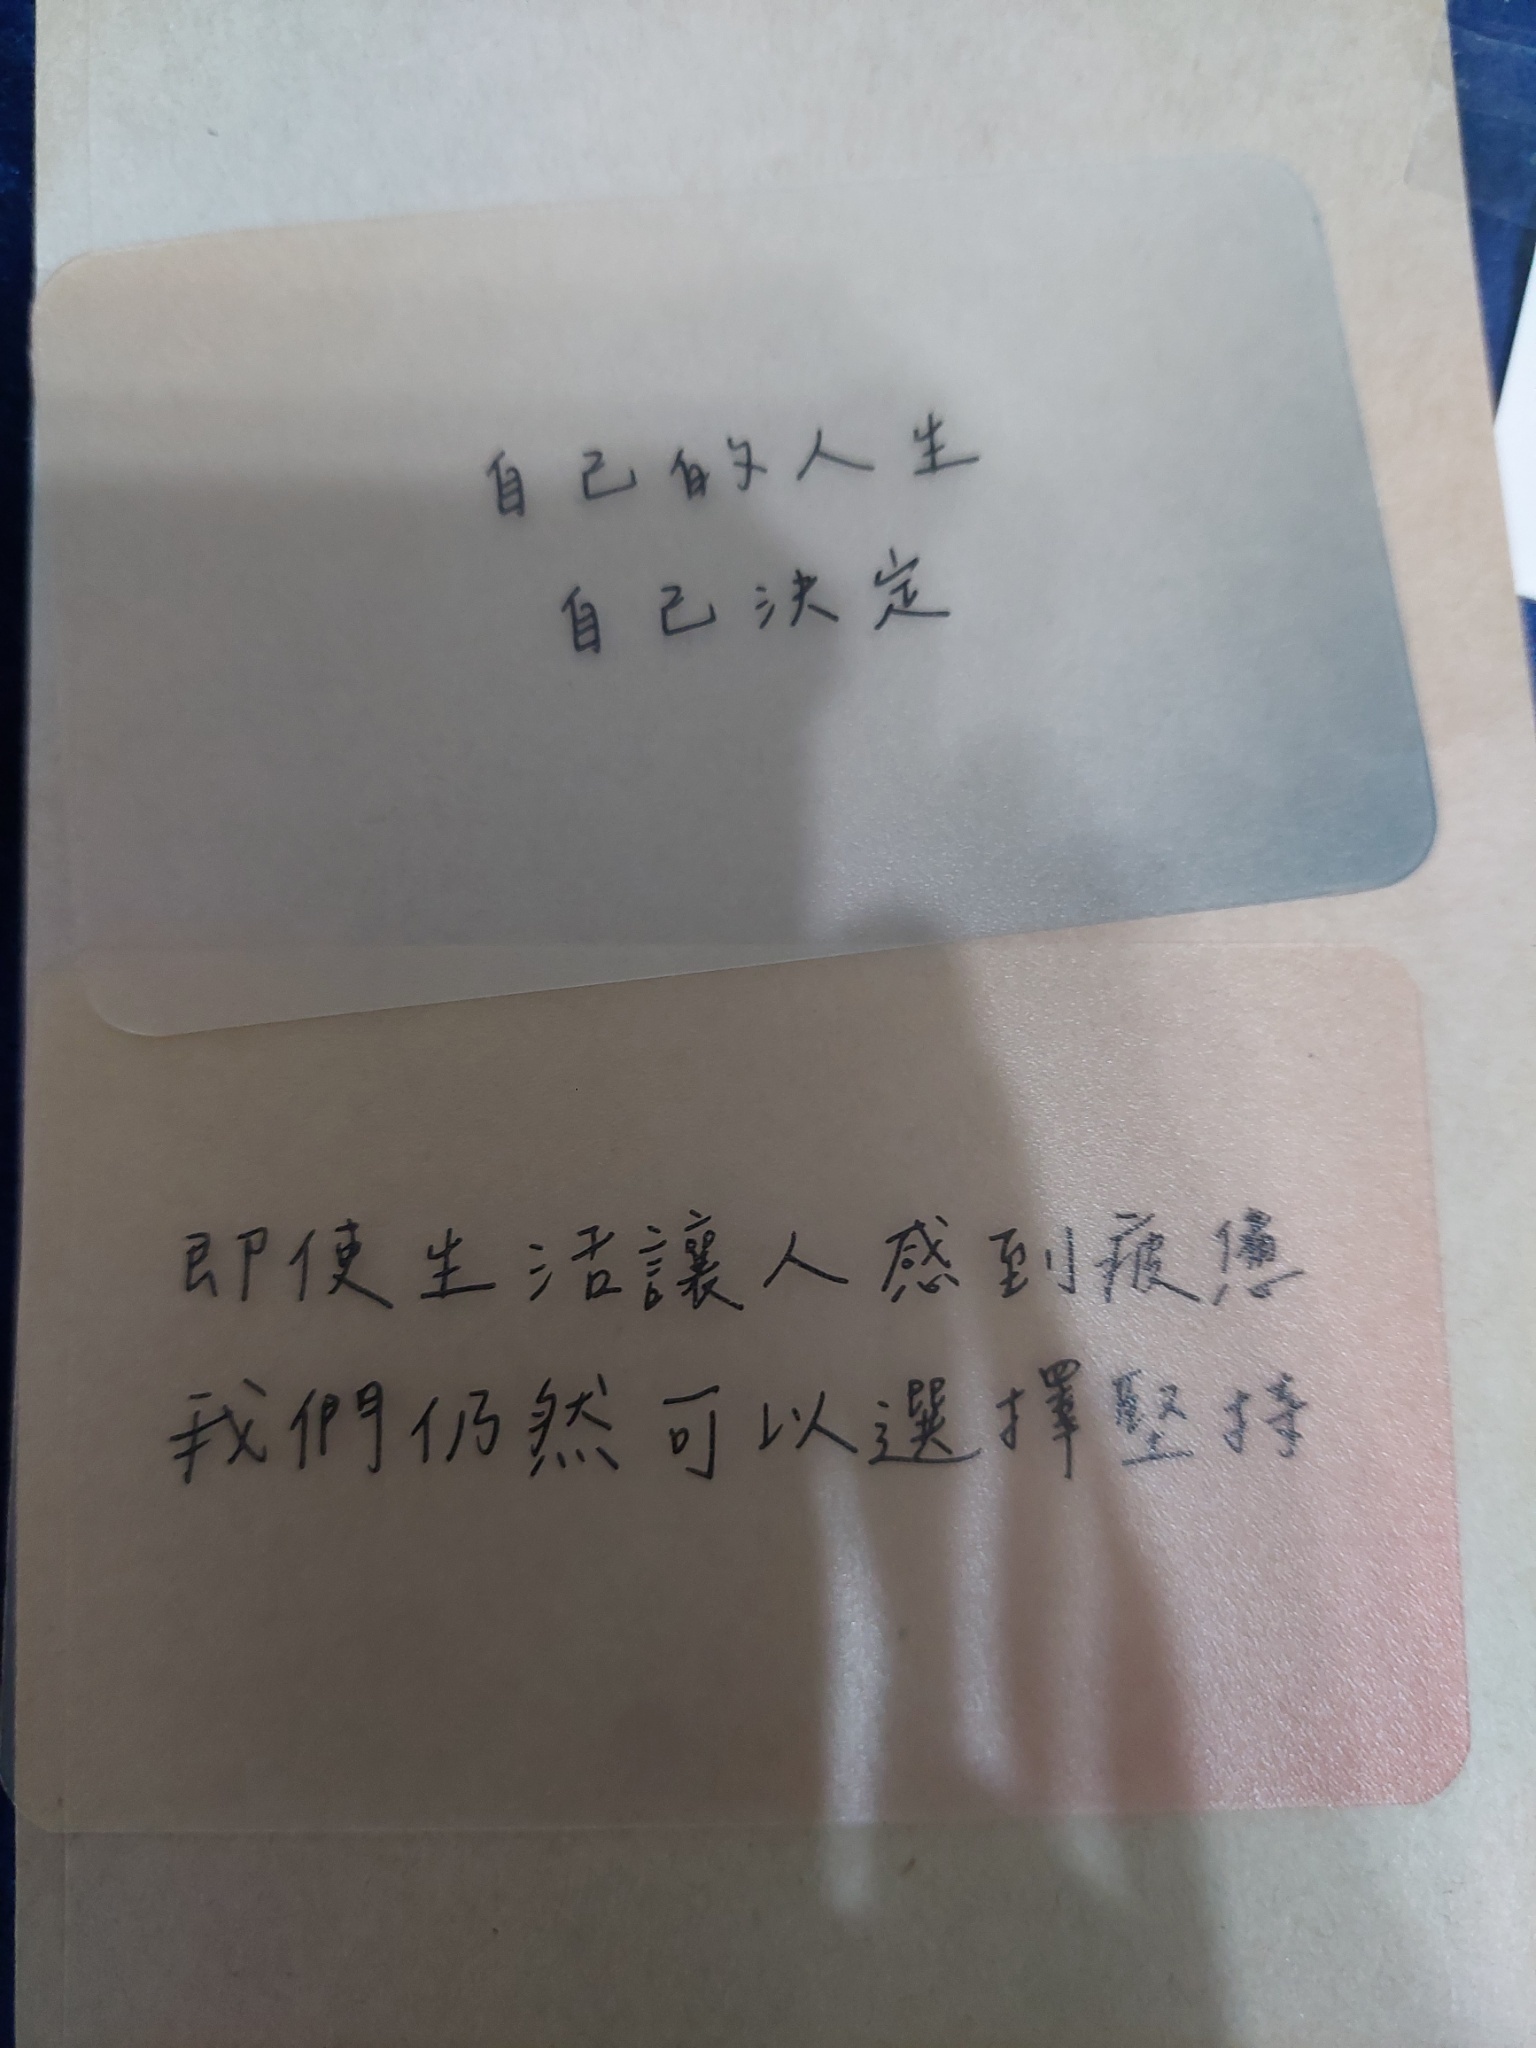 自己的人生
自己決定
即使生活讓人感到疲憊
我們仍然可以選擇堅持